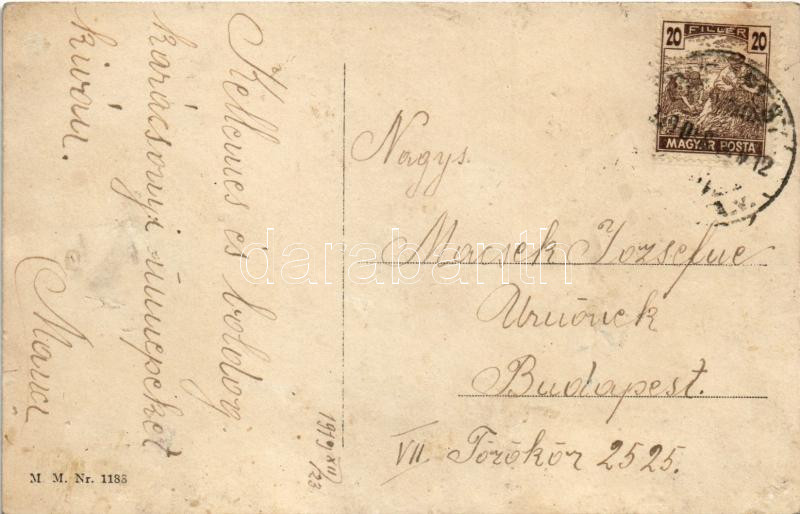 Kellemes és boldog
karácsonyi ünnepeket
kíván.
Manci
1919 XII/23
M. M. Nr. 1188
20 FILLÉR 20
MAGYAR POSTA
Nagys.
Macsek Józsefné
Urnőnek
Budapest.
VII. Törökőr 2525.
darabanth